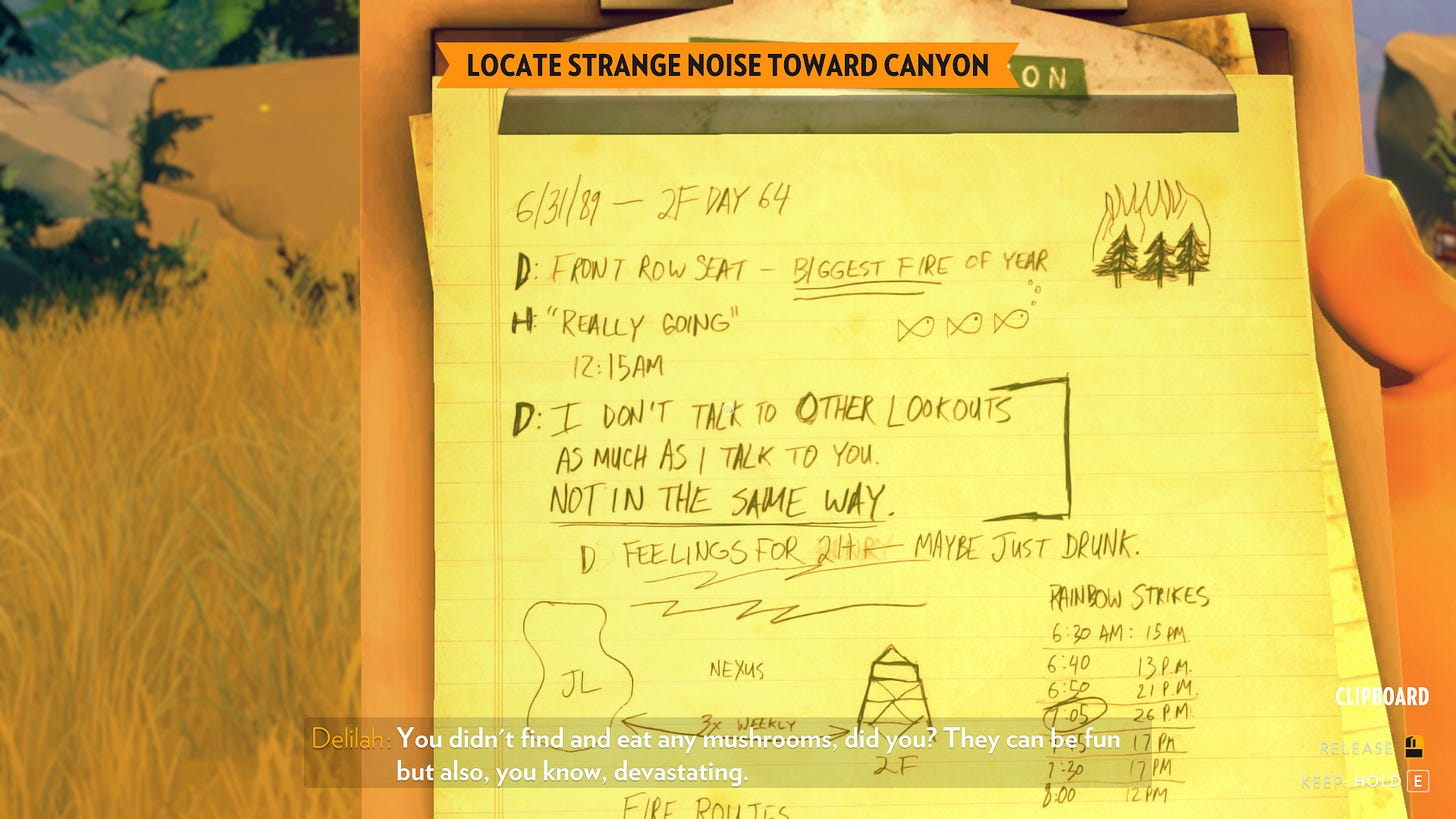 LOCATE STRANGE NOISE TOWARD CANYON
ON
6/31/89 — 2F DAY 64
D: FRONT ROW SEAT – BIGGEST FIRE OF YEAR
H: "REALLY GOING"
12:15AM
D: I DON'T TALK TO OTHER LOOKOUTS
AS MUCH AS I TALK TO YOU.
NOT IN THE SAME WAY.
D FEELINGS FOR MAYBE JUST DRUNK.
RAINBOW STRIKES
6:30 AM: 15 PM
6:40 13 P.M.
6:50 21 P.M.
7:05 26 P.M.
17 PM
7:30 17 PM
8:00 12 PM
JL
NEXUS
3x WEEKLY
2F
FIRE ROUTES
Delilah: You didn't find and eat any mushrooms, did you? They can be fun
but also, you know, devastating.
CLIPBOARD
RELEASE:
KEEP: HOLD E